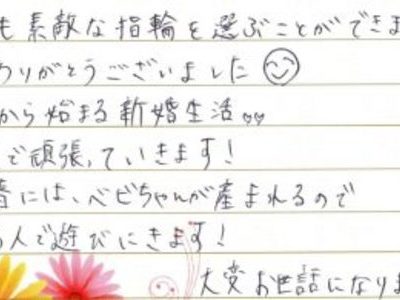 も素敵な指輪を選ぶことができま
りがとうございました
から始まる新婚生活
で頑張っていきます!
には、ベビちゃんが産まれるので
人で遊びにきます!
大変お世話になりま